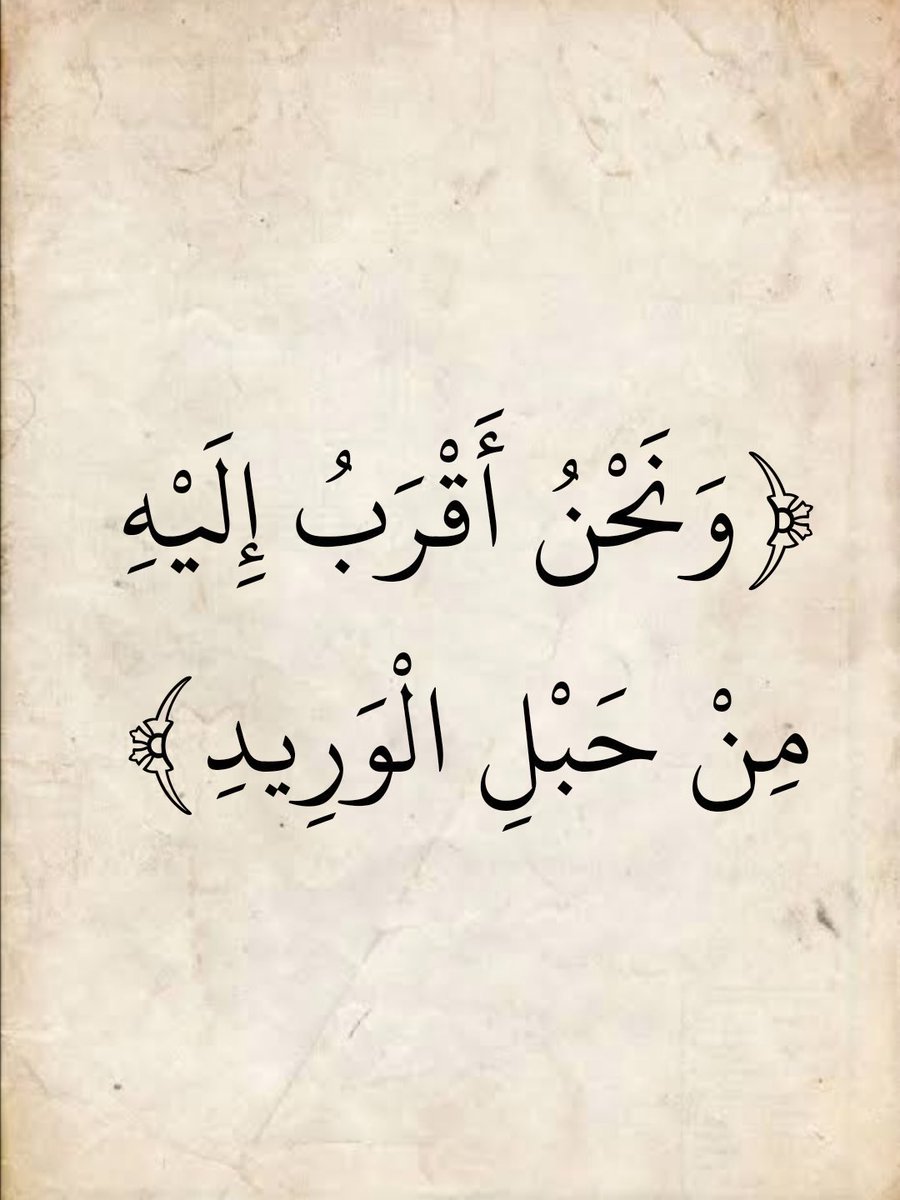 ﴿وَنَحْنُ أَقْرَبُ إِلَيْهِ
مِنْ حَبْلِ الْوَرِيدِ﴾